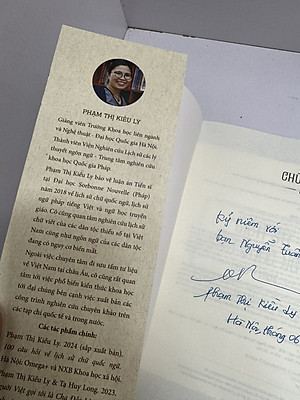 PHẠM THỊ KIỀU LY
Giảng viên Trường Khoa học liên ngành
và Nghệ thuật - Đại học Quốc gia Hà Nội.
Thành viên Viện Nghiên cứu Lịch sử các lý
thuyết ngôn ngữ - Trung tâm nghiên cứu
khoa học Quốc gia Pháp.
Phạm Thị Kiều Ly bảo vệ luận án Tiến sĩ
tại Đại học Sorbonne Nouvelle (Pháp)
năm 2018 về lịch sử chữ quốc ngữ, lịch sử
ngữ pháp tiếng Việt và ngữ học truyền
giáo. Cô cũng quan tâm nghiên cứu lịch sử
chữ viết của các dân tộc thiểu số tại Việt
Nam cũng như ngôn ngữ của các dân tộc
đang có nguy cơ biến mất.
Ngoài việc chuyên tâm đi sưu tầm tư liệu
về Việt Nam tại châu Âu, cô cũng rất quan
tâm tới việc phổ biến kiến thức khoa học
tới đại chúng bên cạnh việc xuất bản các
công trình nghiên cứu chuyên khảo trên
các tạp chí quốc tế và trong nước.
Các tác phẩm chính:
Phạm Thị Kiều Ly. 2024 (sắp xuất bản).
100 câu hỏi về lịch sử chữ quốc ngữ.
Hà Nội: Omega+ và NXB Khoa học xã hội.
Phạm Thị Kiều Ly & Tạ Huy Long. 2023.
CHÚ
Kỷ niệm với
bạn Nguyễn Tuấn
Phạm Thị Kiều Ly
Hà Nội, tháng 06